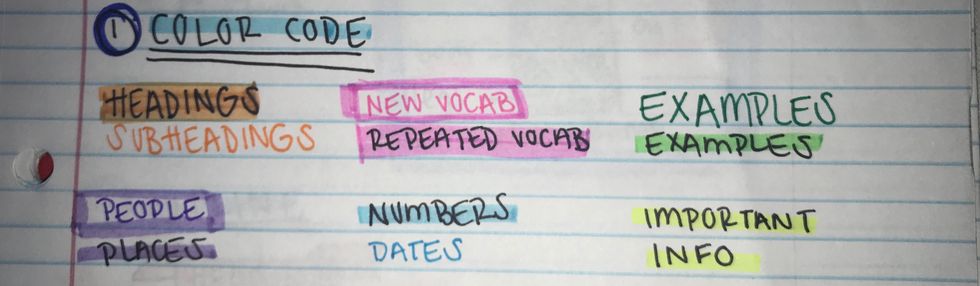 1 COLOR CODE
HEADINGS
SUBHEADINGS
NEW VOCAB
REPEATED VOCAB
EXAMPLES
EXAMPLES
PEOPLE
PLACES
NUMBERS
DATES
IMPORTANT
INFO